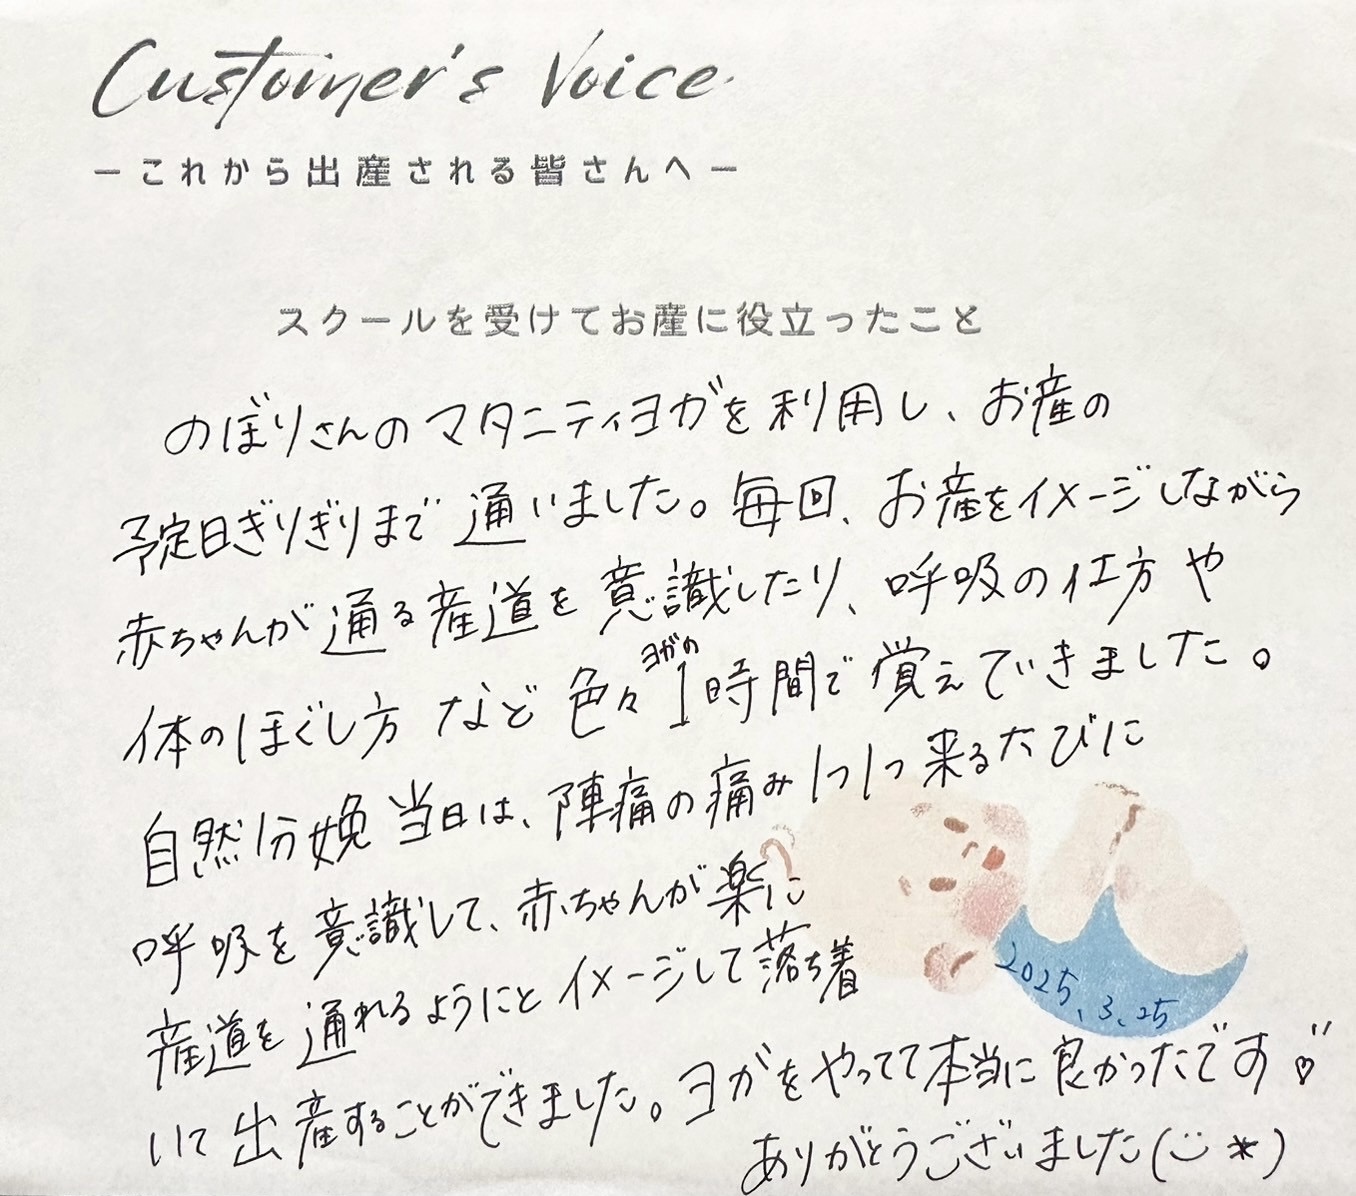 Customer's Voice
ーこれから出産される皆さんへー
スクールを受けてお産に役立ったこと
のぼりさんのマタニティヨガを利用し、お産の
予定日ぎりぎりまで通いました。毎回、お産をイメージしながら
赤ちゃんが通る産道を意識したり、呼吸の仕方や
体のほぐし方など色々ヨガの1時間で覚えていきました。
自然分娩当日は、陣痛の痛み1つ1つ来るたびに
呼吸を意識して、赤ちゃんが楽に
産道を通れるようにとイメージして落ち着
いて出産することができました。ヨガをやってて本当に良かったです♡
ありがとうございました(¨̮*)
2025.3.25